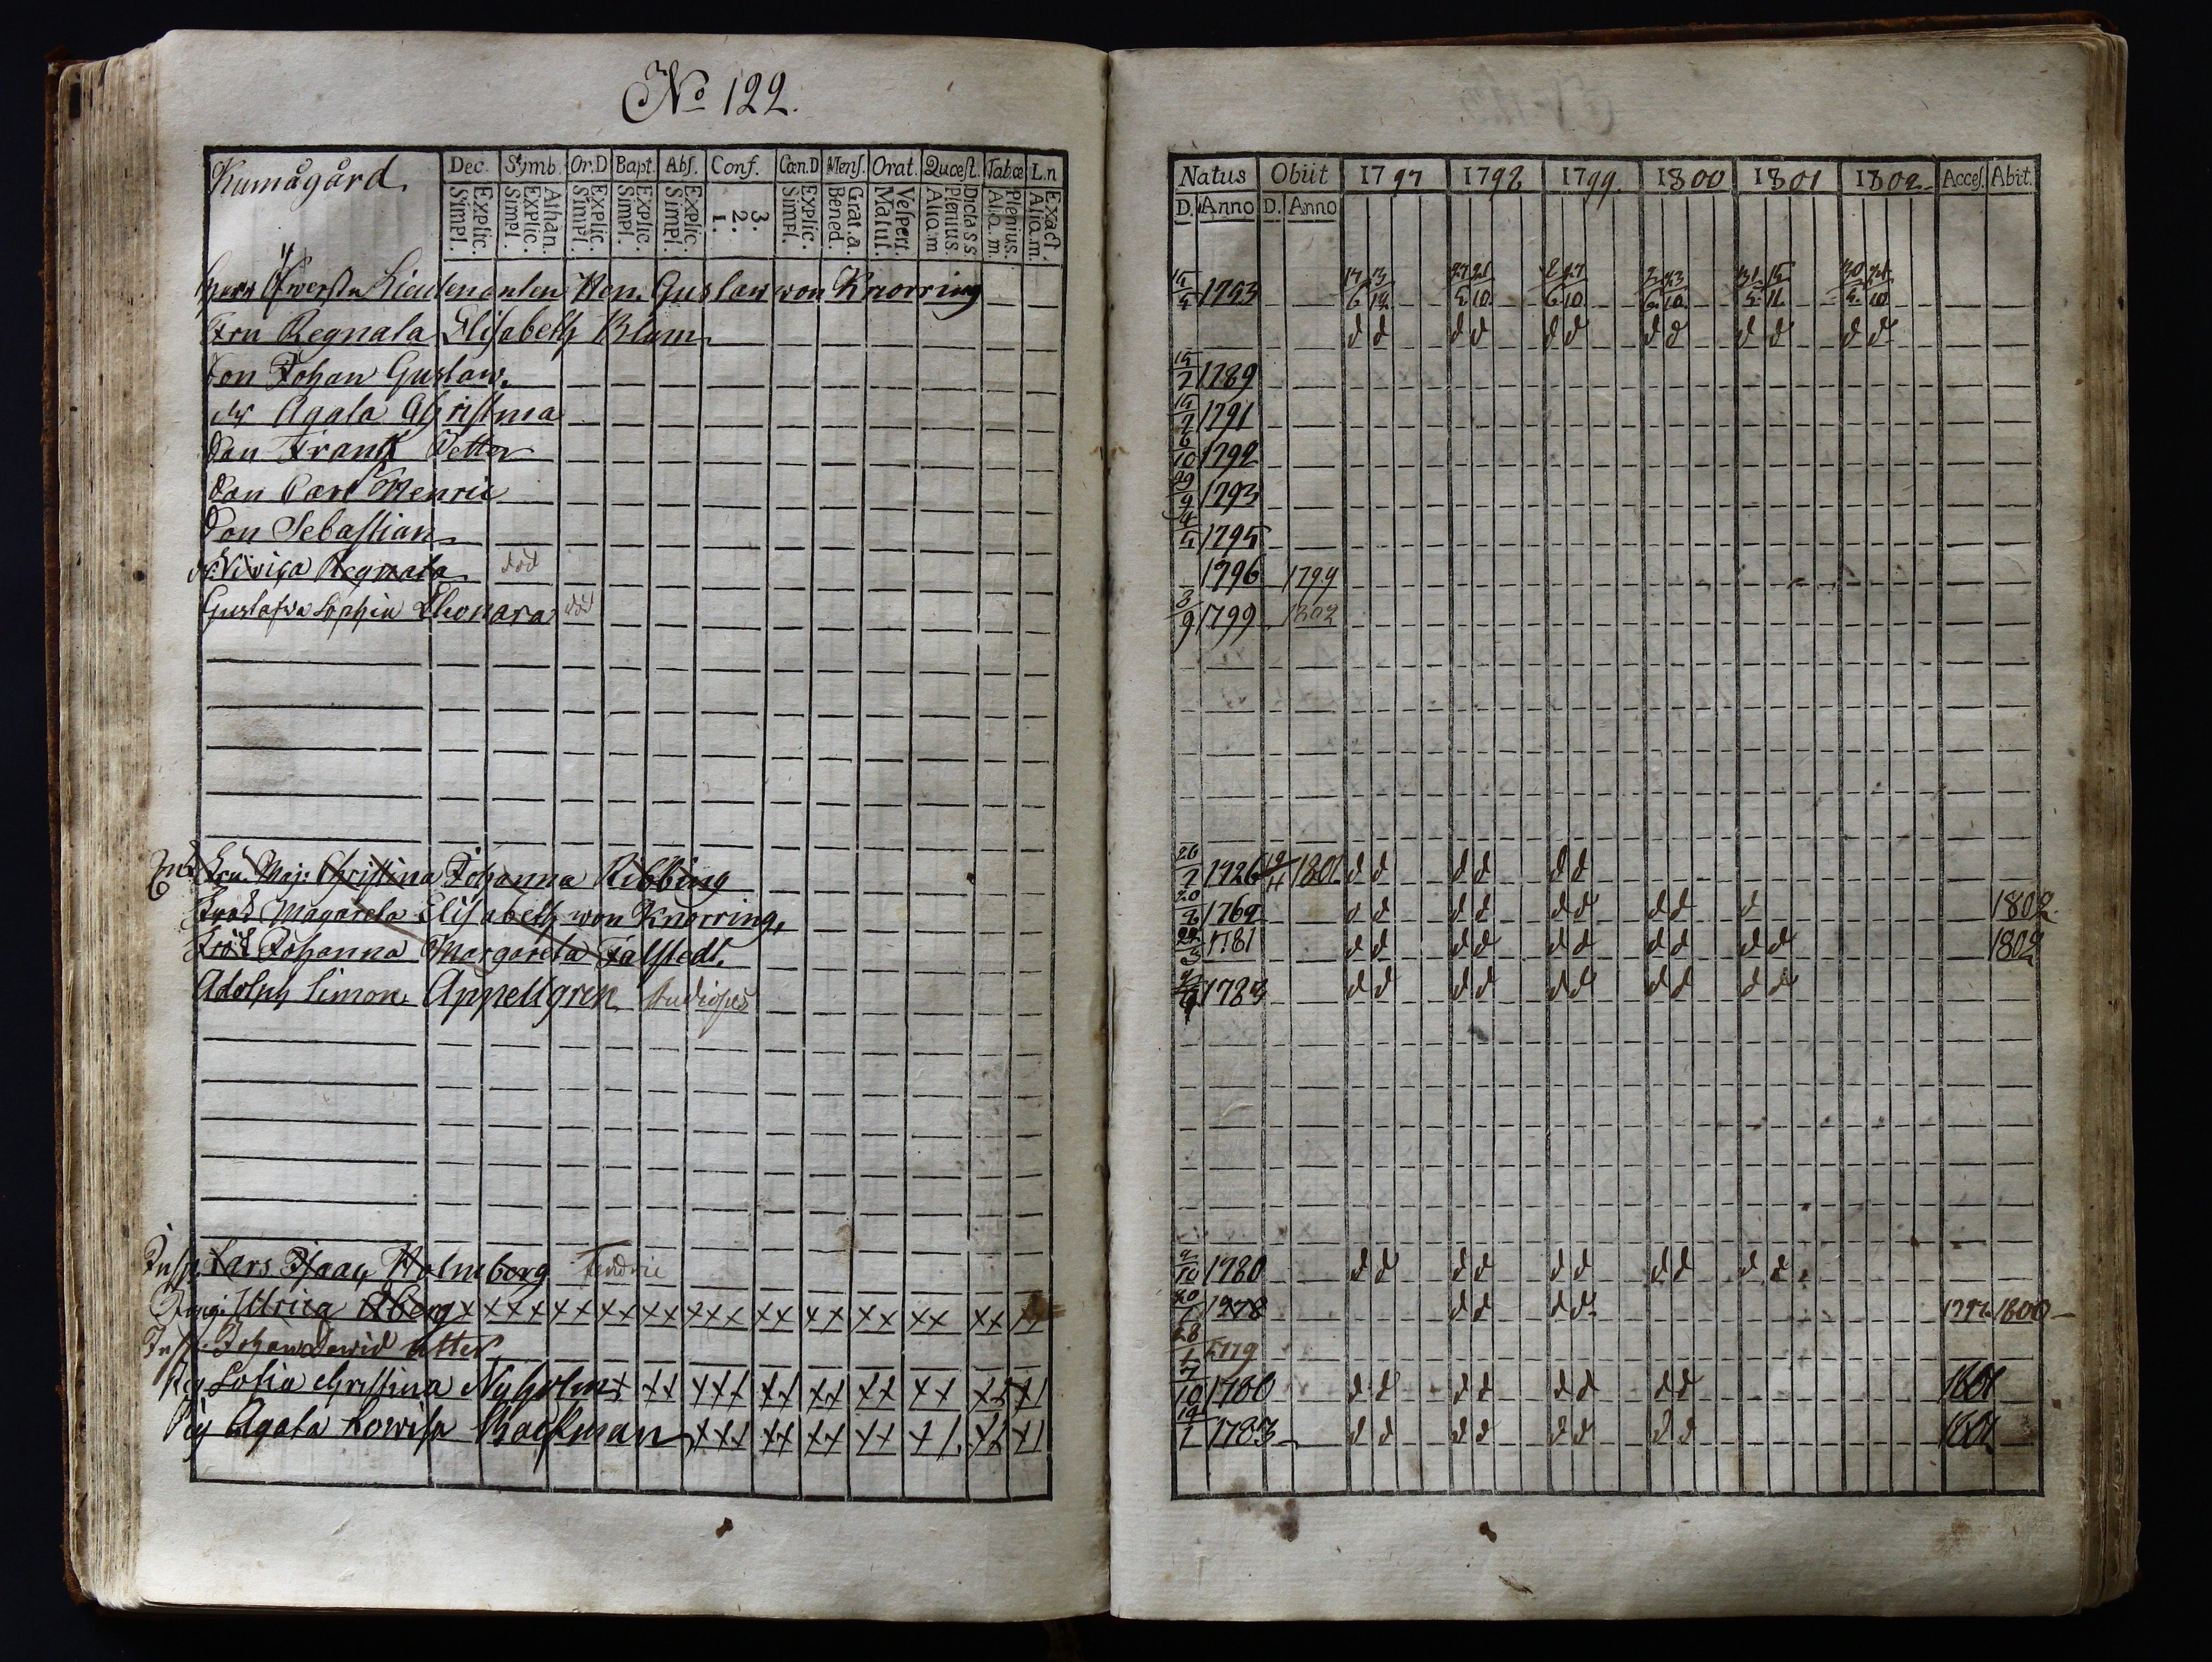 No 122.
Kumågård.
Dec. Symb. Or.D Bapt. Abs. Conf. Cœn.D Mens. Orat. Quæst. Tab.œ L.n
Explic. Simpl. Athan. Explic. Simpl. Explic. Simpl. Explic. Simpl. Explic. Simpl. 3. 2. 1. Explic. Simpl. Grat.a. Bened. Vespert. Matut. Dictass Plenius. Aliq.m Plenius. Aliq.m. Exact. Aliq.m.
Herr Öfwerste Lieutenanten Hen. Gustaw von Knorring
Fru Regnata Elisabeth Blum
Son Johan Gustaw.
dr Agata Christina
Son Frantz Petter
Son Carl Henric
Son Sebastian
dr. Viviça Regnata död
Gustafva Sophia Eleonara död
Enk. Fru. Maj: Christina Johanna Ribbing
Frök Magareta Elisabeth von Knorring.
Frök Johanna Margareta Falstedt.
Adolph Simon Appellgren studiosus
Insp. Lars Isaac Holmberg Fendric
Jungf. Ulrica Åberg x x x x x x x x x x x x x x x x x x x x x x x
Insp. Johan Dawid utter
Pig Sofia Christina Nyholm x x x x x x x x x x x x x x x x
Pig Agata Lowisa Backman x x x x x x x x x x x x x x
Natus Obiit 1797 1798 1799. 1800 1801 1802 Acces. Abit.
D. Anno D. Anno
15/4 1753 17/6 13/12 27/5 21/10 2/6 27/10 2/6 23/10 31/5 15/11 30/5 24/10
d d d d d d d d d d d d
15/7 1789
15/7 1791
6/10 1792
29/9 1793
4/5 1795
1796 1799
3/9 1799 1802
26/7 1726 12/4 1801 d d d d d d
20/8 1769 d d d d d d d d d 1802.
22/3 1781 d d d d d d d d d d 1802
1783 d d d d d d d d d d
2/10 1780 d d d d d d d d d d
20/7 1778 d d d d 1797 1800
28/1 1779
7/10 1780 d d d d d d d d 1801
19/1 1783 d d d d d d d d 1801